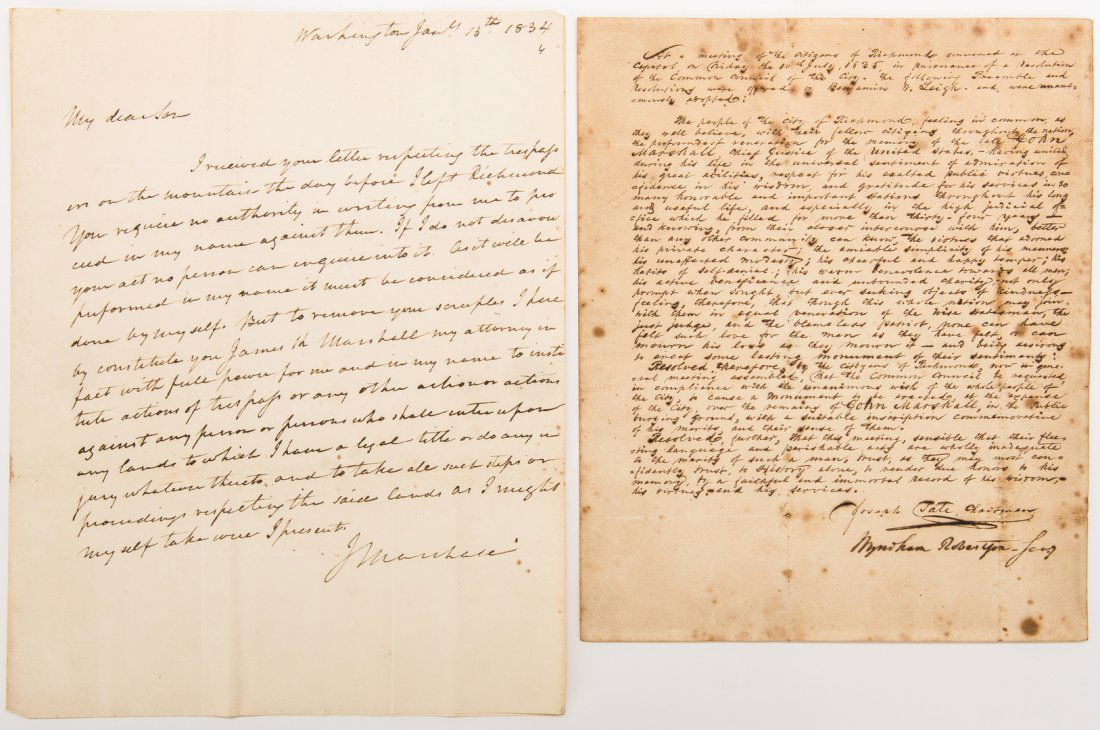 Washington Jan.y 13th 1834
My dear Son
I received your letter respecting the trespass
ers on the mountain the day before I left Richmond
You require no authority in writing from me to pro
ceed in my name against them. If I do not disavow
your act no person can enquire into it. As it will be
performed in my name it must be considered as if
done by myself. But to remove your scruples I here
by constitute you James K Marshall my attorney in
fact with full power for me and in my name to insti
tute actions of trespass or any other action or actions
against any person or persons who shall enter upon
any lands to which I have a legal title or do any in
jury whatever thereto, and to take all such steps or
proceedings respecting the said lands as I might
myself take were I present.
J Marshall
At a meeting of the Citizens of Richmond convened at the
Capitol, on Friday the 10th July, 1835 in pursuance of a resolution
of the Common Council of the City. the following Preamble and
Resolutions were offered by Benjamin W. Leigh. and were unani-
mously adopted:
The people of the City of Richmond, feeling in common, as
they well believe, with their fellow citizens throughout the nation,
the profoundest veneration for the memory of the late John
Marshall Chief Justice of the United States,- having united
during his life in the universal sentiment of admiration of
his great abilities, respect for his exalted public virtues, con-
fidence in his wisdom, and gratitude for his services in so
many honorable and important stations throughout his long
and useful life, and especially in the high judicial of-
fice which he filled for more than thirty-four years -
and knowing, from their closer intercourse with him, better
than any other community can know, the virtues that adorned
his private character; the amiable simplicity of his manners;
his unaffected modesty; his cheerful and happy temper; his
habits of self-denial; his warm benevolence towards all men;
his active beneficence and unbounded charity, not only
prompt when sought but ever seeking objects of kindness-
feeling, therefore, that though this whole nation may join
with them in equal veneration of the wise statesman, the
just judge, and the blameless patriot, none can have
felt such love for the man as they have felt, or can
mourn his loss as they mourn it - and being desirous
to erect some lasting monument of their sentiments:
Resolved therefore, by the Citizens of Richmond, now in gene-
ral meeting assembled, that the Common Council be requested
in compliance with the unanimous wish of the whole people of
the City, to cause a monument to be erected, at the expense
of the City, over the remains of John Marshall, in the public
burying ground, with a suitable inscription commemorative
of his merits, and their sense of them.
Resolved, further, that this meeting, sensible that their flee-
ting language and perishable acts are wholly inadequate
to the merits of such a man, trust, as they may most con-
fidently trust, to History alone, to render due honors to his
memory, by a faithful and immortal Record of his wisdom,
his virtues and his services.
Joseph Tate, Chairman
Wyndham Robertson - Secy